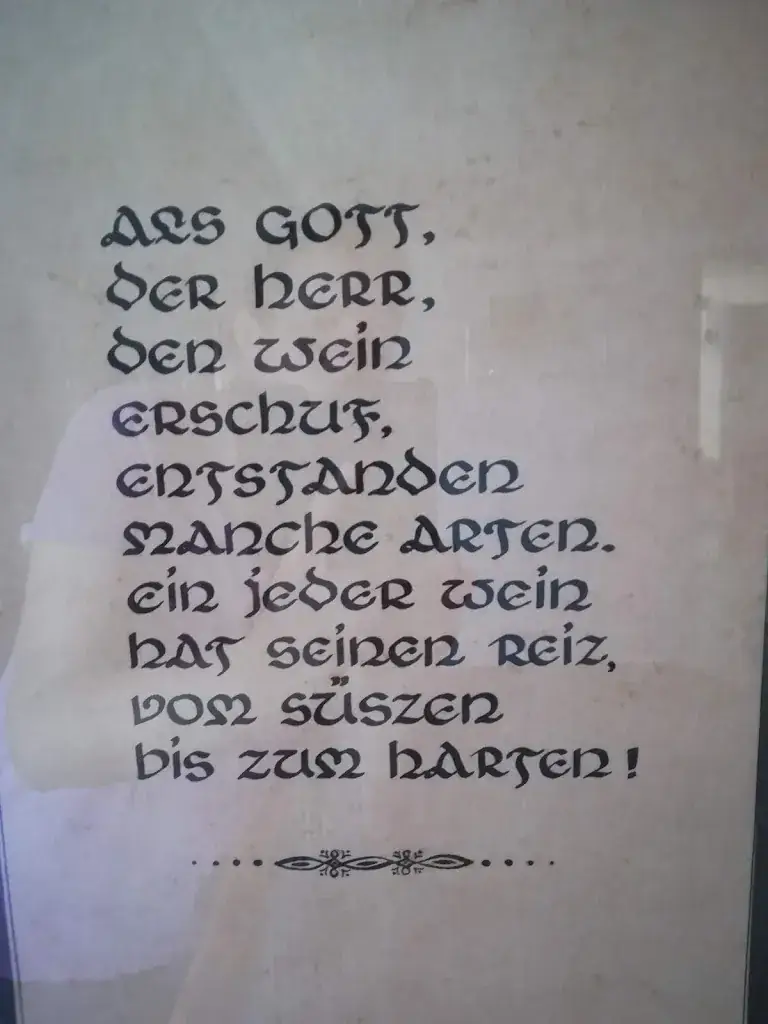 ALS GOTT,
DER HERR,
DEN WEIN
ERSCHUF,
ENTSTANDEN
MANCHE ARTEN.
EIN JEDER WEIN
HAT SEINEN REIZ,
VOM SÜSZEN
BIS ZUM HARTEN!